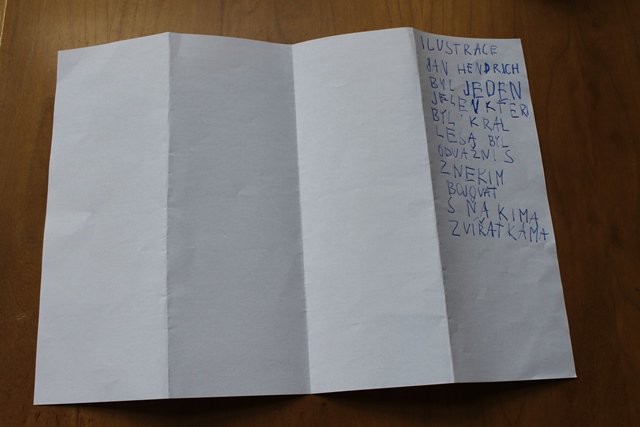 ILUSTRACE
JAN HENDRICH
BYL JEDEN
JELEN KTERI
BYL KRAL
LESA BYL
ODVAŽNI S
ZNEKIM
BOJOVAT
S ŇAKIMA
ZVIŘATKAMA